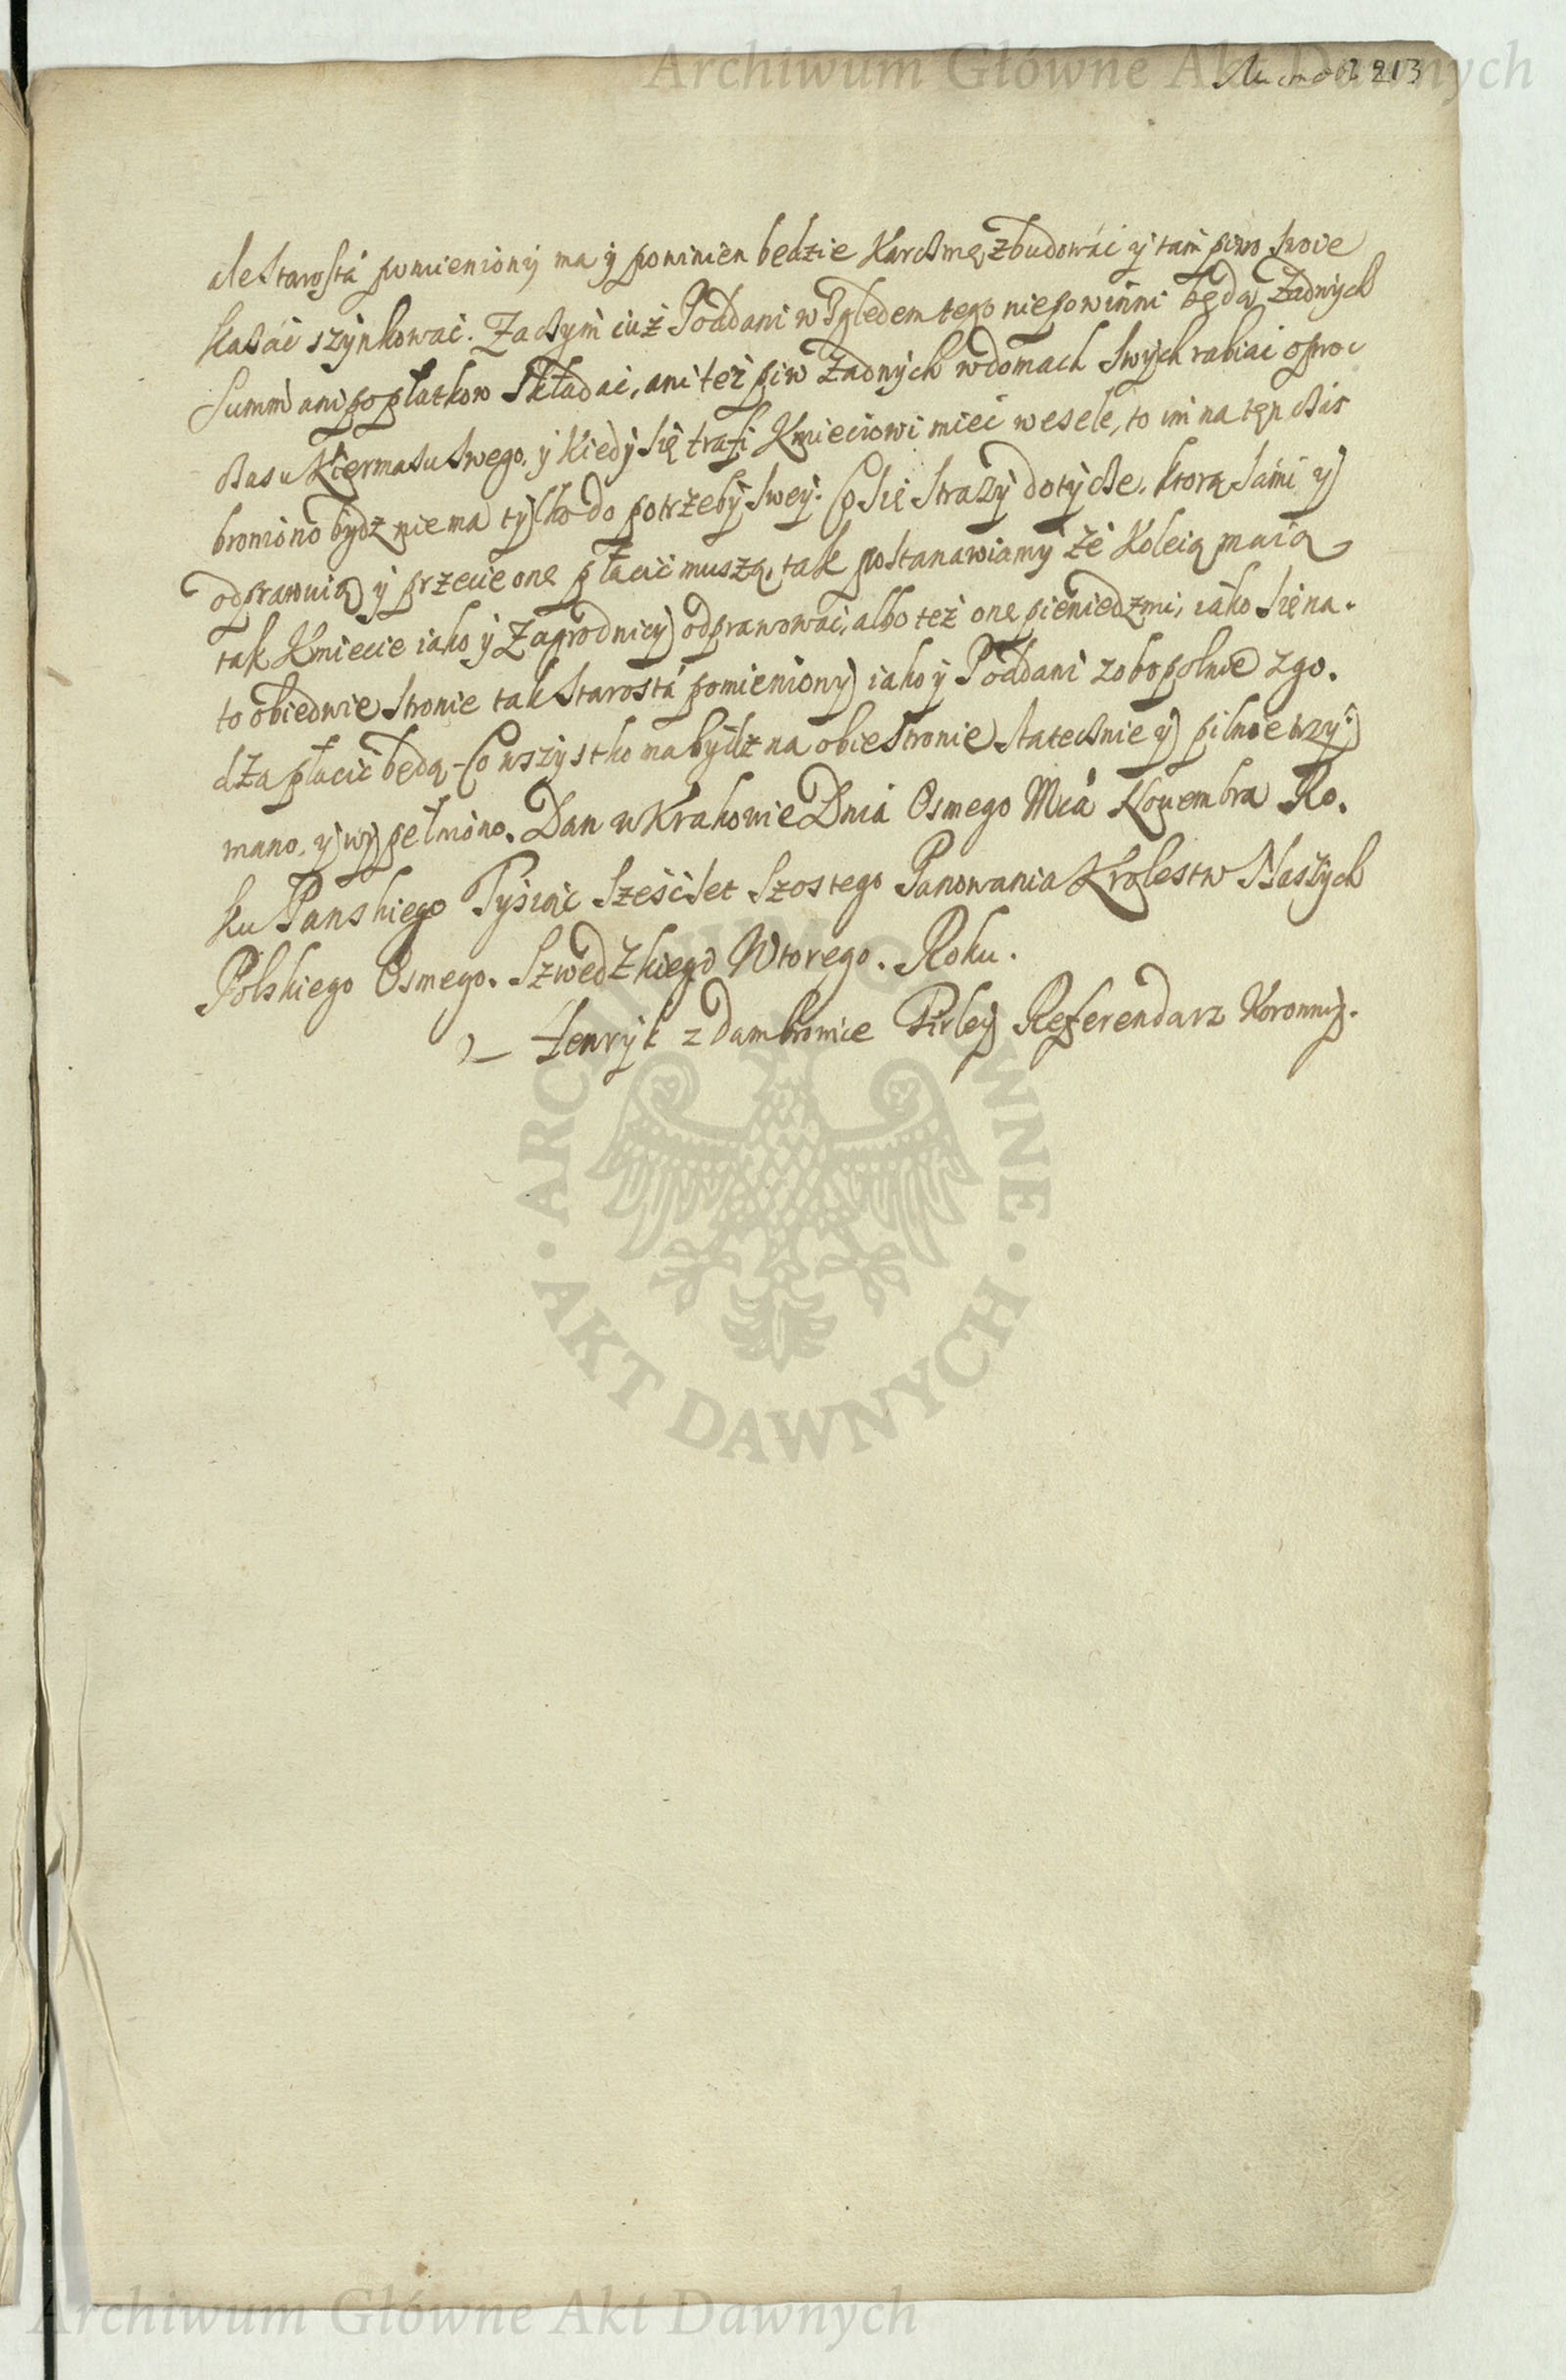 Archiwum Główne Akt Dawnych
Листовъ 213
ale Starostá pomieniony ma y powinien będzie Karczmę zbudowáć y tam piwo swoie
kazáć szynkowáć. Zaczym iuż Poddani względem tego niepowinni będą żadnych
Summ ani popłatkow składać, ani też piw żadnych w domach swych rabiać oproc
czasu Kiermaszu swego, y kiedy się trafi Kmieciowi mieć wesele, to im na ten czás
broniono bydz niema tylko do potrzeby swey. Co się Straży dotycze, którą sámi y
odprawuią y przecie onę płacić muszą, tak postanawiamy że Koleią maią
tak Kmiecie iako y Zagrodnicy odprawować, albo też onę pieniedzmi, iáko się na.
to obiedwie stronie tak Starostá pomieniony iako y Poddani zobopolnie zgo.
dzą płacić będą. Co wszystko ma bydz na obie stronie statecznie y pilnie trzy:
mano, y wypełniono. Dan w Krakowie Dniá Osmego Mcá Nouembra Ro.
ku Panskiego Tysiąc Sześćset Szostego Panowania Krolestw Naszych
Polskiego Osmego. Szwedzkiego Wtorego. Roku.
Henryk z Dambrowice Firley Referendarz Koronny.
ARCHIWUM GŁÓWNE
AKT DAWNYCH
Archiwum Główne Akt Dawnych